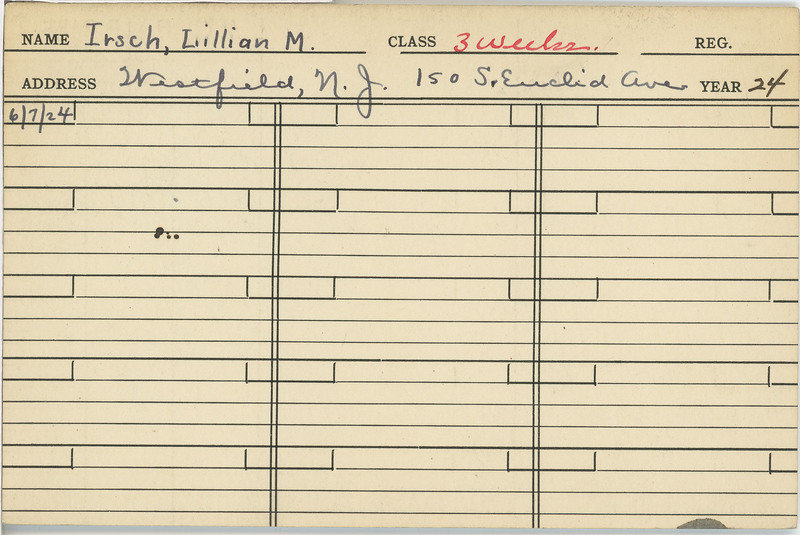 NAME Irsch, Lillian M. CLASS 3 weeks. REG.
ADDRESS Westfield, N. J. 150 S. Euclid Ave. YEAR 24
6/7/24